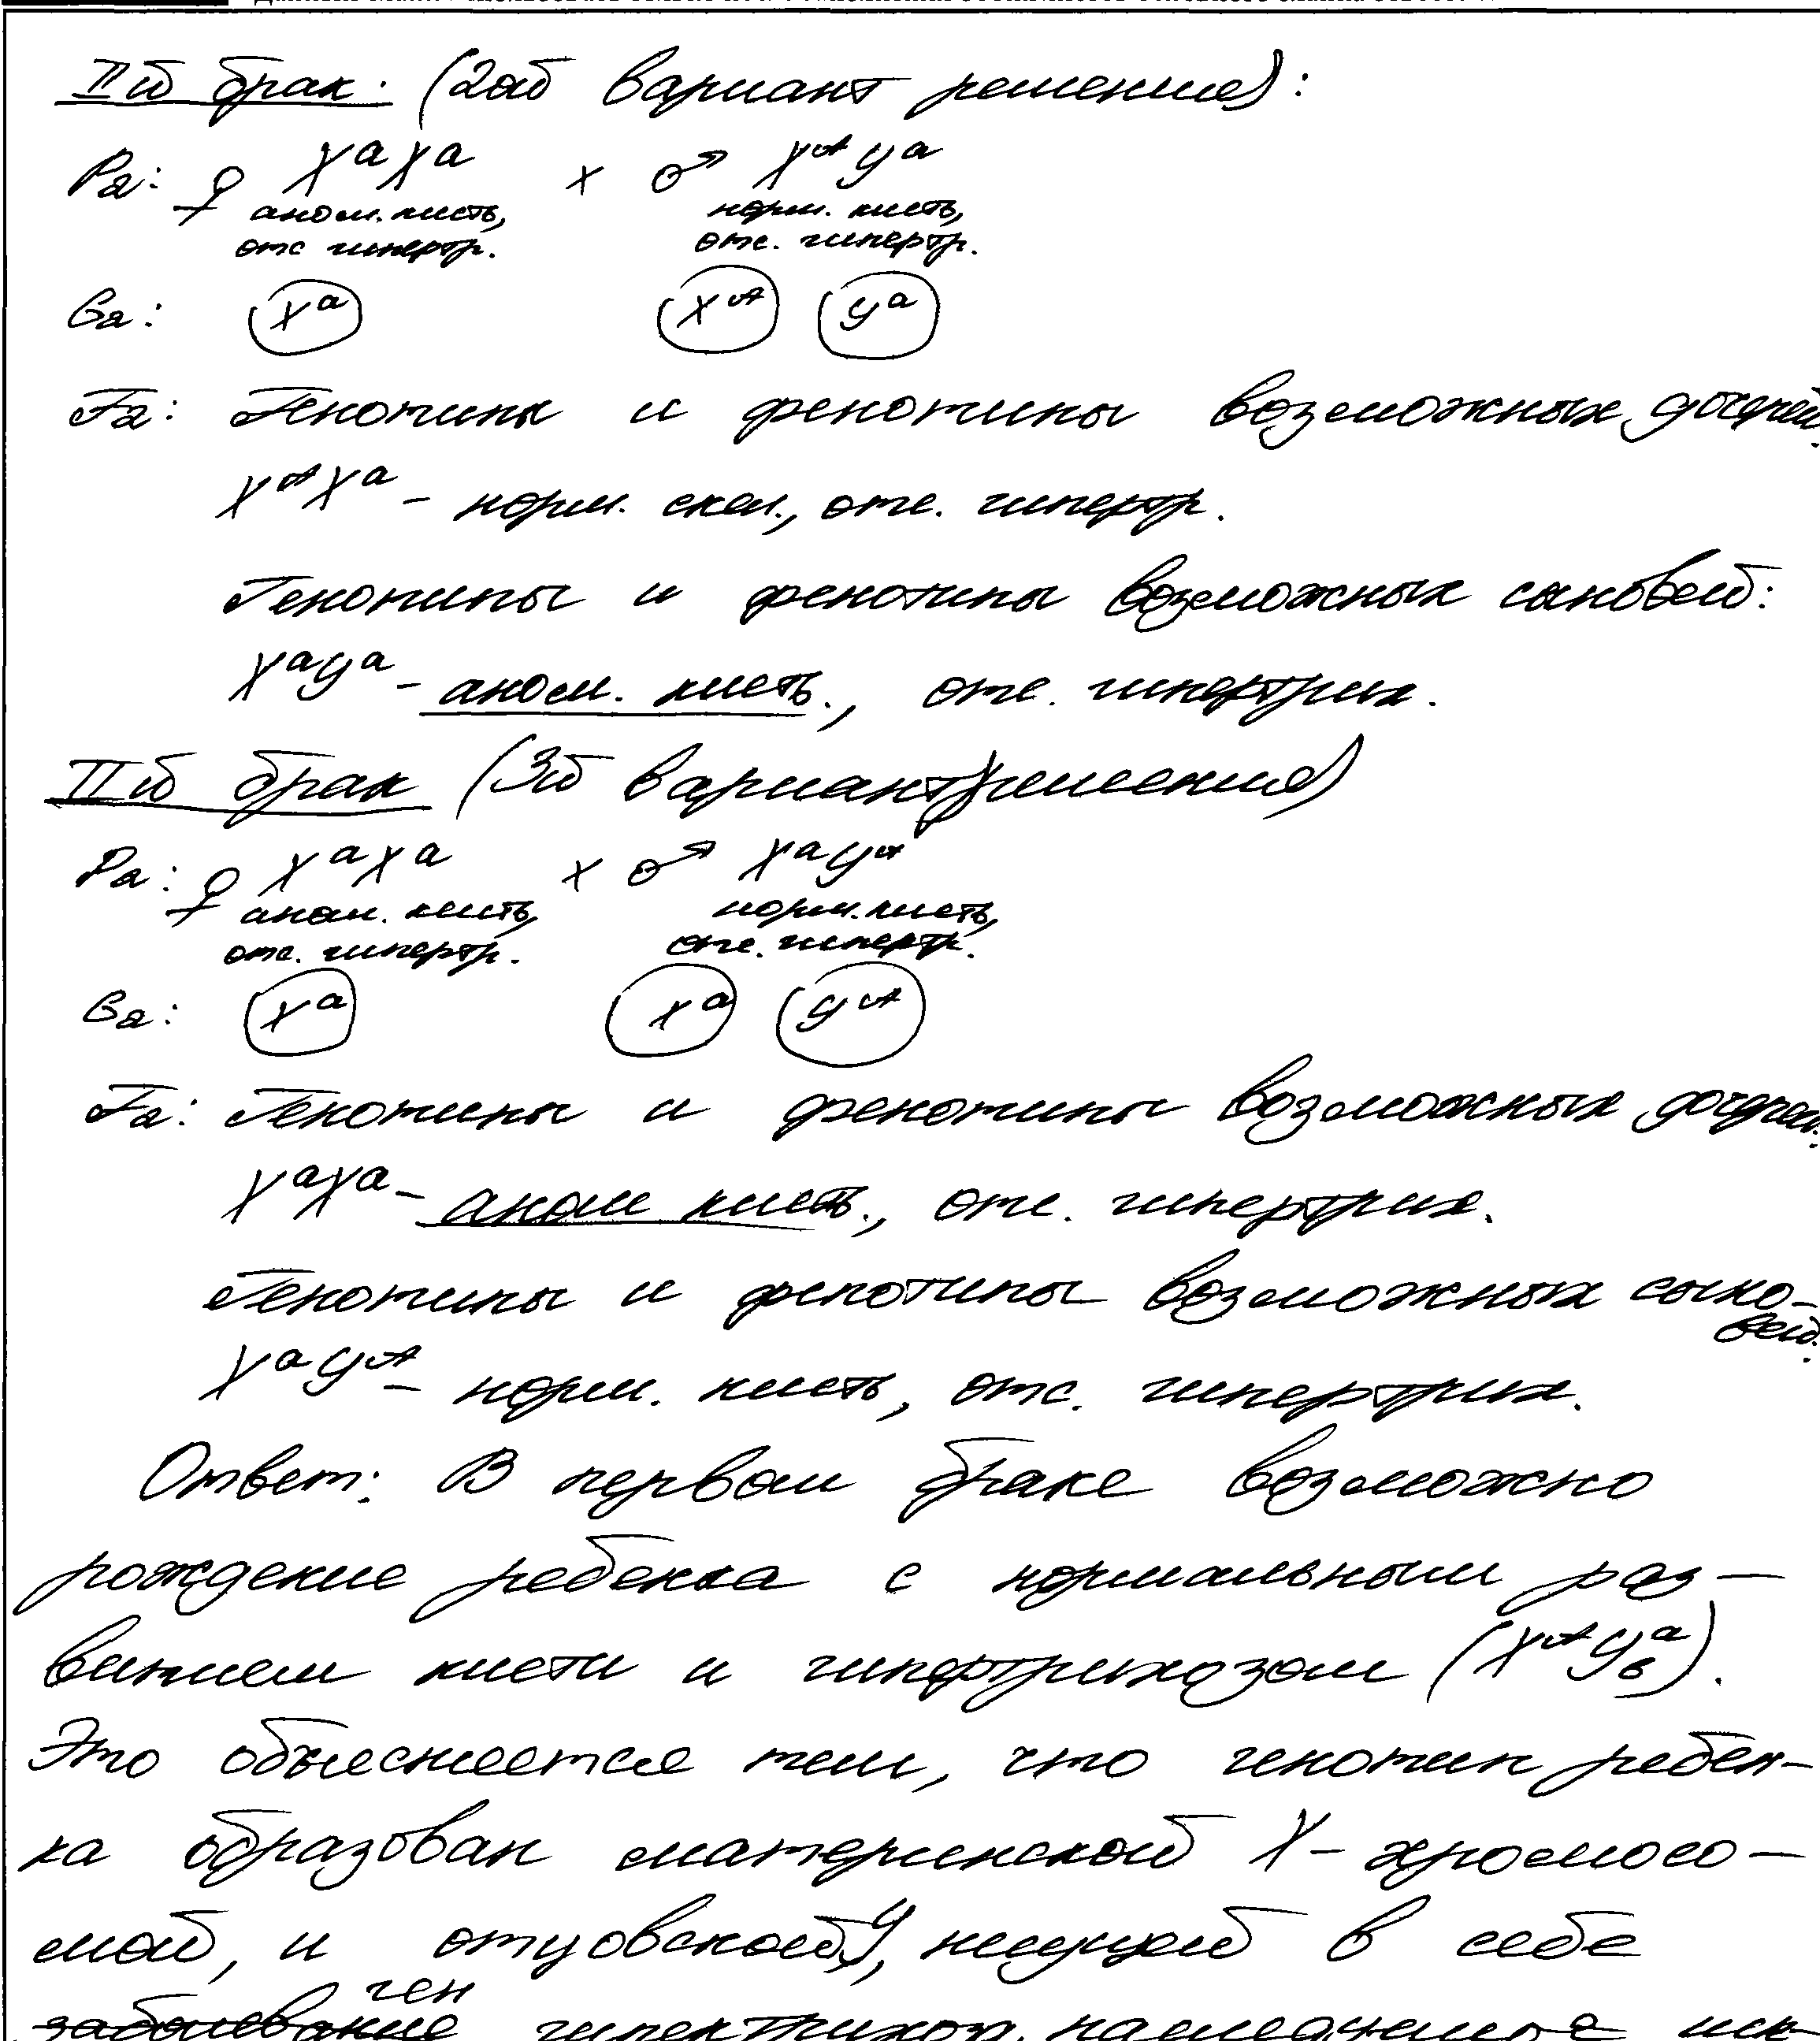 IIй брак: (2ой вариант решения):
P₂: ♀ XᵃXᵃ × ♂ XᴬYᵃ
аном. кисть, норм. кисть,
отс гипертр. отс. гипертр.
G₂: Xᵃ Xᴬ Yᵃ
F₂: Генотипы и фенотипы возможных дочерей:
XᴬXᵃ - норм. скел., отс. гипертр.
Генотипы и фенотипы возможных сыновей:
XᵃYᵃ - аном. кисть., отс. гипертрих.
IIй брак (3й вариант решения)
P₂: ♀ XᵃXᵃ × ♂ XᵃYᴬ
аном. кисть, норм. кисть,
отс. гипертр. отс. гипертр.
G₂: Xᵃ Xᵃ Yᴬ
F₂: Генотипы и фенотипы возможных дочерей:
XᵃXᵃ - аном кисть., отс. гипертрих.
Генотипы и фенотипы возможных сыно-
вей:
XᵃYᴬ - норм. кисть, отс. гипертрих.
Ответ: В первом браке возможно
рождение ребенка с нормальным раз-
витием кисти и гипертрихозом (XᴬYᵃв).
Это объясняется тем, что генотип ребен-
ка образован материнской X-хромосо-
мой, и отцовской Y, несущей в себе
ген